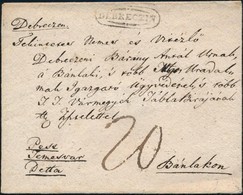 Debreczen.
DEBRECZIN
Tekintetes Nemes és Vitézlő
Debreczeni Bárány Antal Urnak,
a Bánlaki, s több Uradal
mak Igazgató Ügyvédjének s több
T. T. Vármegyék Táblabirájának
tisztelettel
Pest
Temesvar
Detta
20
Bánlakon